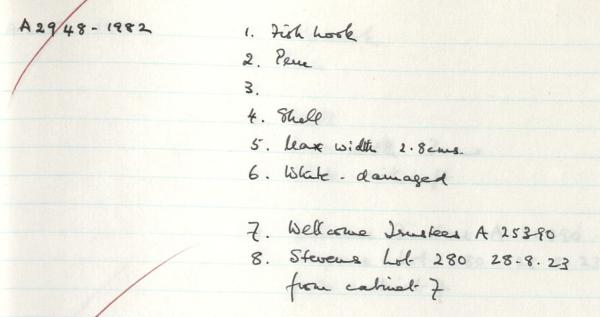 A2948-1982
1. Fish hook
2. Peru
3.
4. Shell
5. Max width 2.8cms.
6. White - damaged
7. Wellcome Trustees A 25390
8. Stevens Lot 280 28-8.23
from cabinet 7